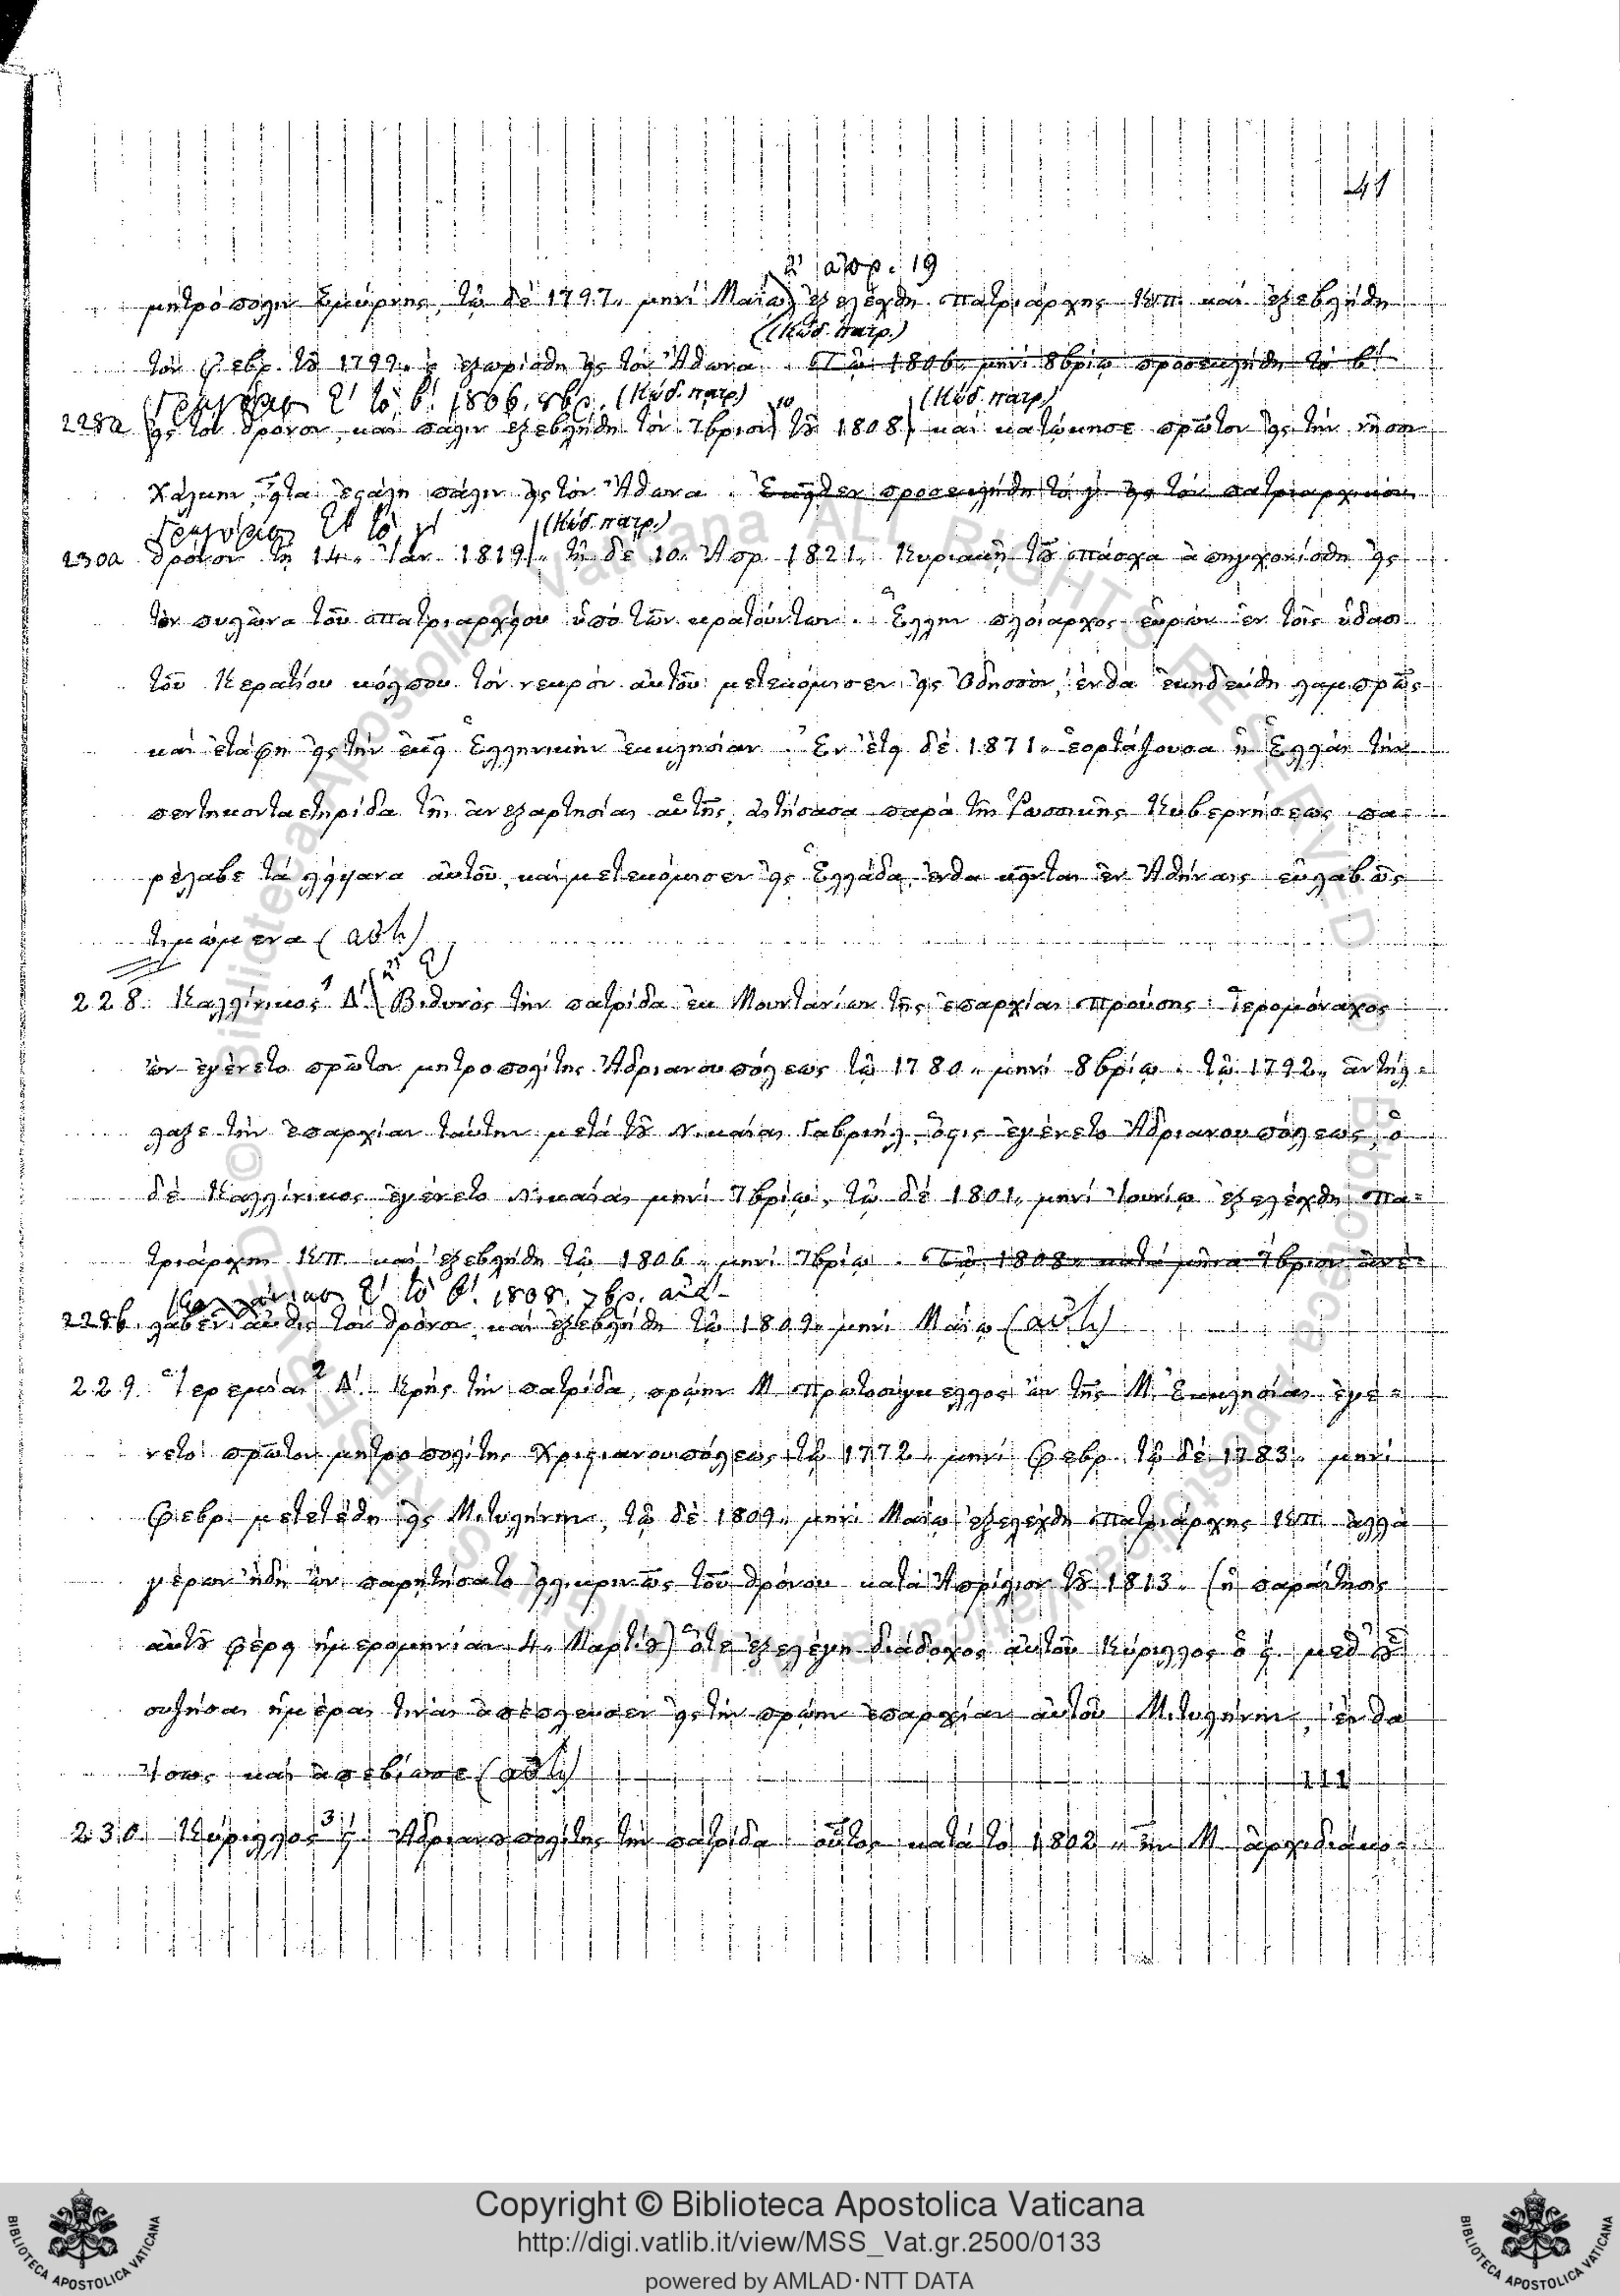 41
ἢ ἀπρ. 19
μητρόπολιν Σμύρνης, τῷ δὲ 1797 μηνὶ Μαΐῳ ἐξελέχθη πατριάρχης Κπ. καὶ ἐξεβλήθη
(Κώδ. πατρ.)
τὸν φεβρ. τοῦ 1799 ἐξωρίσθη εἰς τὸν Ἄθωνα. Τῷ 1806 μηνὶ 8βρίῳ προσεκλήθη τὸ β!
Γρηγόριος Ε' τὸ β! 1806. 8βρ. (Κώδ. πατρ.) 10 (Κώδ. πατρ.)
228a εἰς τὸν θρόνον, καὶ πάλιν ἐξεβλήθη τὸν 7βριον τοῦ 1808 καὶ κατῴκησε πρῶτον εἰς τὴν νῆσον
Χάλκην, εἶτα ἐστάλη πάλιν εἰς τὸν Ἄθωνα. Ἐκεῖθεν προσεκλήθη τὸ γ. εἰς τὸν πατριαρχικὸν
Γρηγόριος Ε' τὸ γ' (Κώδ. πατρ.)
230a θρόνον τῇ 14 Ἰαν. 1819, τῇ δὲ 10 Ἀπρ. 1821 Κυριακῇ τοῦ πάσχα ἀπηγχονίσθη εἰς
τὸν πυλῶνα τοῦ πατριαρχείου ὑπὸ τῶν κρατούντων. Ἕλλην πλοίαρχος εὑρὼν ἐν τοῖς ὕδασι
τοῦ Κερατίου κόλπου τὸν νεκρὸν αὐτοῦ μετεκόμισεν εἰς Ὀδησσόν, ἔνθα ἐκηδεύθη λαμπρῶς
καὶ ἐτάφη εἰς τὴν ἐκεῖ Ἑλληνικὴν ἐκκλησίαν. Ἐν ἔτει δὲ 1871 ἑορτάζουσα ἡ Ἑλλὰς τὴν
πεντηκονταετηρίδα τῆς ἀνεξαρτησίας αὐτῆς, αἰτήσασα παρὰ τῆς Ῥωσσικῆς Κυβερνήσεως πα-
ρέλαβε τὰ λείψανα αὐτοῦ, καὶ μετεκόμισεν εἰς Ἑλλάδα, ἔνθα κεῖνται ἐν Ἀθήναις εὐλαβῶς
τιμώμενα (αὐτ)
228. Καλλίνικος¹ Δ' (ἢ Ε) Βιθυνὸς τὴν πατρίδα ἐκ Μουντανίων τῆς ἐπαρχίας Προύσης. Ἱερομόναχος
ὢν ἐγένετο πρῶτον μητροπολίτης Ἀδριανουπόλεως τῷ 1780 μηνὶ 8βρίῳ. τῷ 1792 ἀντήλ-
λαξε τὴν ἐπαρχίαν ταύτην μετὰ τοῦ Νικαίας Γαβριήλ, ὅστις ἐγένετο Ἀδριανουπόλεως, ὁ
δὲ Καλλίνικος ἐγένετο Νικαίας μηνὶ 7βρίῳ, τῷ δὲ 1801 μηνὶ Ἰουνίῳ ἐξελέχθη πα-
τριάρχης Κπ. καὶ ἐξεβλήθη τῷ 1806 μηνὶ 7βρίῳ. Τῷ 1808 κατὰ μῆνα 7βριον ἀνέ-
Καλλίνικος Ε' τὸ β! 1808. 7βρ.
228b. λαβεν αὖθις τὸν θρόνον, καὶ ἐξεβλήθη τῷ 1809 μηνὶ Μαΐῳ (αὐτ)
229. Ἱερεμίας² Δ'. Κρὴς τὴν πατρίδα, πρῴην Μ Πρωτοσύγκελλος ὢν τῆς Μ. Ἐκκλησίας ἐγέ-
νετο πρῶτον μητροπολίτης Χριστιανουπόλεως τῷ 1772 μηνὶ φεβρ. τῷ δὲ 1783 μηνὶ
φεβρ. μετετέθη εἰς Μιτυλήνην, τῷ δὲ 1809 μηνὶ Μαΐῳ ἐξελέχθη πατριάρχης Κπ. ἀλλὰ
γέρων ἤδη ὢν παρῃτήσατο εἰλικρινῶς τοῦ θρόνου κατὰ Ἀπρίλιον τοῦ 1813 (ἡ παραίτησις
αὐτοῦ φέρει ἡμερομηνίαν 4 Μαρτίου) ὅτε ἐξελέγη διάδοχος αὐτοῦ Κύριλλος ὁ ϛ. μεθ' οὗ
συζήσας ἡμέρας τινὰς ἀπέπλευσεν εἰς τὴν πρῴην ἐπαρχίαν αὐτοῦ Μιτυλήνην, ἔνθα
ἴσως καὶ ἀπεβίωσε (αὐτ)
230. Κύριλλος³ ϛ'. Ἀδριανοπολίτης τὴν πατρίδα. οὗτος κατὰ τὸ 1802 ἦν Μ ἀρχιδιάκο-
Copyright © Biblioteca Apostolica Vaticana
http://digi.vatlib.it/view/MSS_Vat.gr.2500/0133
powered by AMLAD·NTT DATA
BIBLIOTECA APOSTOLICA VATICANA
BIBLIOTECA APOSTOLICA VATICANA